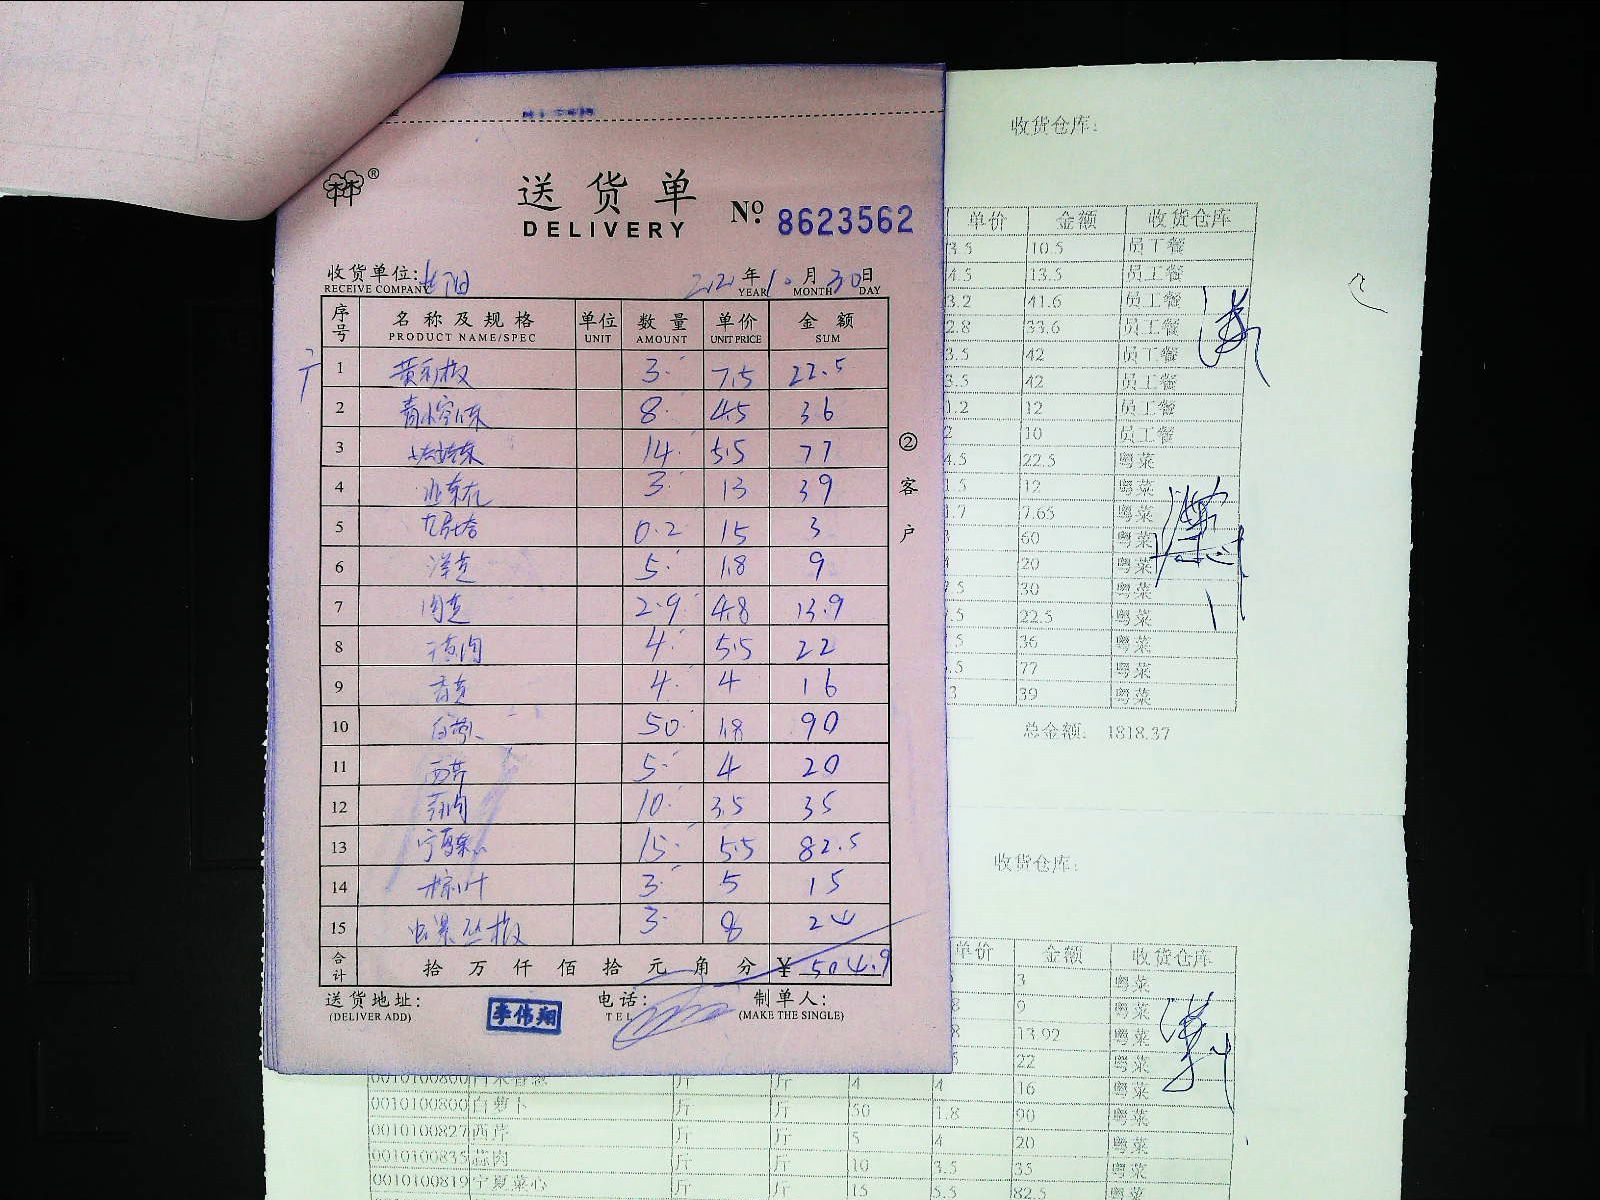 收货仓库:
送货单
DELIVERY
No. 8623562
收货单位:
RECEIVE COMPANY
年 10 月 30 日
YEAR MONTH DAY
序号 名称及规格 单位 数量 单价 金额
PRODUCT NAME/SPEC UNIT AMOUNT UNIT PRICE SUM
1 3 7.5 22.5
2 8 4.5 36
3 14 5.5 77
4 韭菜花 3 13 39
5 九层塔 0.2 15 3
6 洋芫 5 1.8 9
7 肉芫 2.9 4.8 13.9
8 4 5.5 22
9 香芫 4 4 16
10 白萝卜 50 1.8 90
11 西芹 5 4 20
12 蒜肉 10 3.5 35
13 宁夏菜心 15 5.5 82.5
14 粽叶 3 5 15
15 3 8 24
合计 拾 万 仟 佰 拾 元 角 分 ¥ 504.9
送货地址: 电话: 制单人:
(DELIVER ADD) TEL (MAKE THE SINGLE)
李伟翔
②客户
单价 金额 收货仓库
3.5 10.5 员工餐
4.5 13.5 员工餐
3.2 41.6 员工餐
2.8 33.6 员工餐
3.5 42 员工餐
3.5 42 员工餐
1.2 12 员工餐
2 10 员工餐
4.5 22.5 粤菜
1.5 12 粤菜
1.7 7.65 粤菜
60 粤菜
20 粤菜
.5 30 粤菜
.5 22.5 粤菜
.5 36 粤菜
.5 77 粤菜
3 39 粤菜
总金额: 1818.37
收货仓库:
单价 金额 收货仓库
3 粤菜
8 9 粤菜
8 13.92 粤菜
5 22 粤菜
0010100800 斤 斤 4 4 16 粤菜
0010100800 白萝卜 斤 斤 50 1.8 90 粤菜
0010100827 西芹 斤 斤 5 4 20 粤菜
0010100835 蒜肉 斤 斤 10 3.5 35 粤菜
0010100819 宁夏菜心 斤 斤 15 5.5 82.5 粤菜